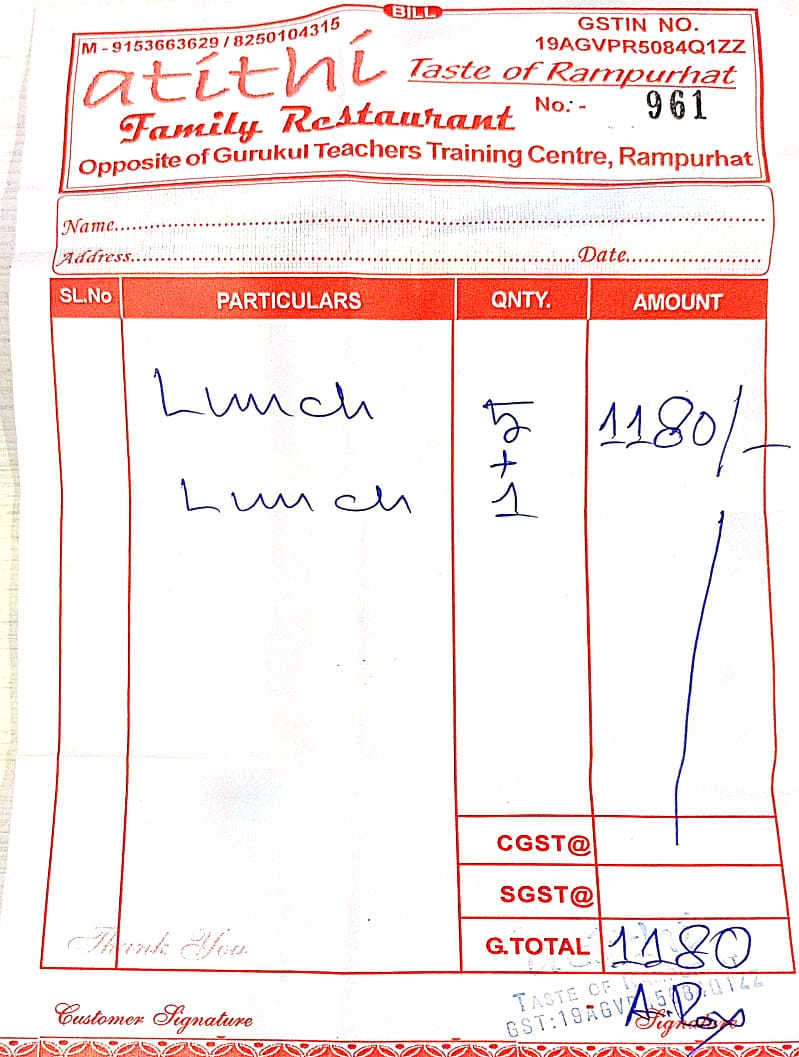 BILL
M - 9153663629 / 8250104315
GSTIN NO.
19AGVPR5084Q1ZZ
atithi
Taste of Rampurhat
Family Restaurant
No.: - 961
Opposite of Gurukul Teachers Training Centre, Rampurhat
Name
Address Date
SL.No PARTICULARS QNTY. AMOUNT
Lunch 5 1180/-
+
Lunch 1
CGST@
SGST@
Thank You
G.TOTAL 1180
TASTE OF
Customer Signature
GST:19AGVPR5084Q1ZZ
Signature